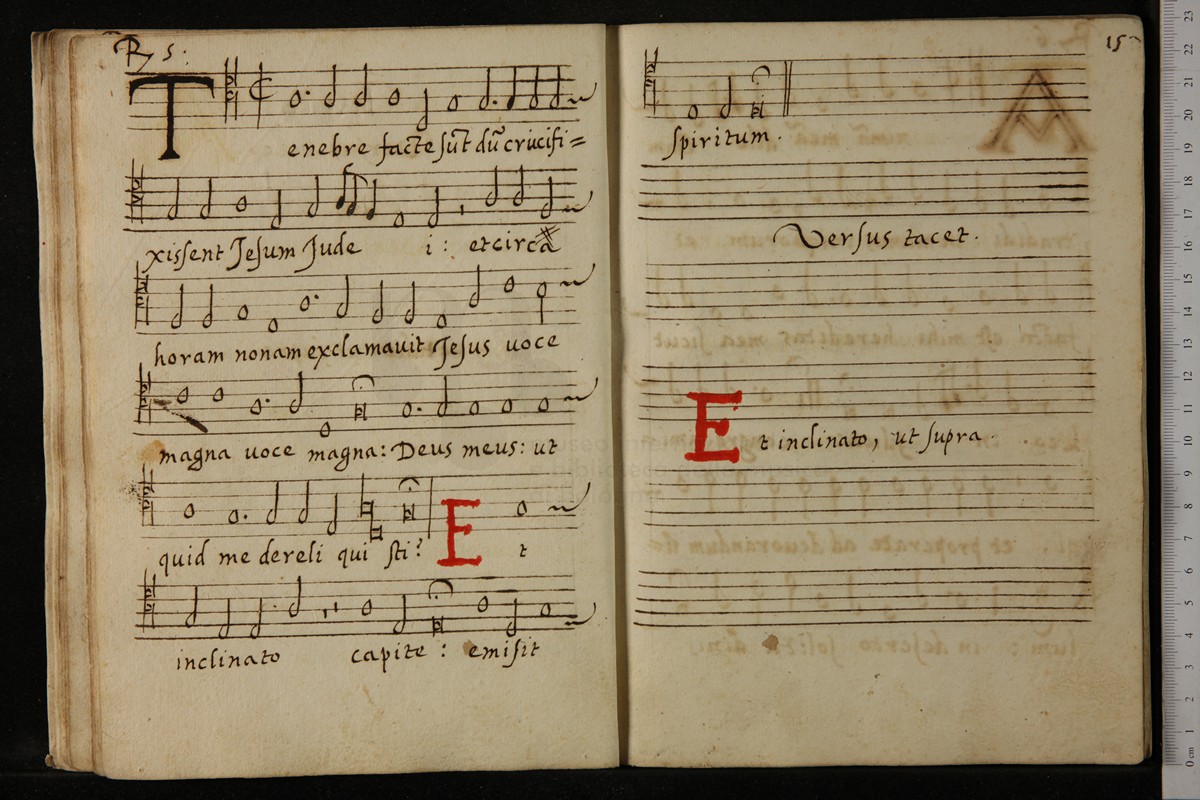 R 5:
Tenebre facte sūt dū crucifi=
xissent Jesum Jude i: et circa
horam nonam exclamauit Jesus uoce
magna uoce magna: Deus meus: ut
quid me dereli qui sti? Et
inclinato capite: emisit
15
spiritum.
Versus tacet.
Et inclinato, ut supra